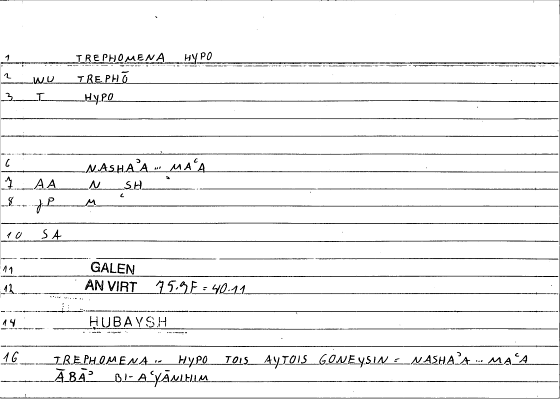 1 TREPHOMENA HYPO
2 WU TREPHŌ
3 T HYPO
6 NASHAʾA .. MAʿA
7 AA N SH ʾ
8 JP M ʿ
10 SA
11 GALEN
12 AN VIRT 75.9F = 40.11
14 HUBAYSH
16 TREPHOMENA .. HYPO TOIS AYTOIS GONEYSIN = NASHAʾA .. MAʿA
ĀBĀʾ BI-AʿYĀNIHIM